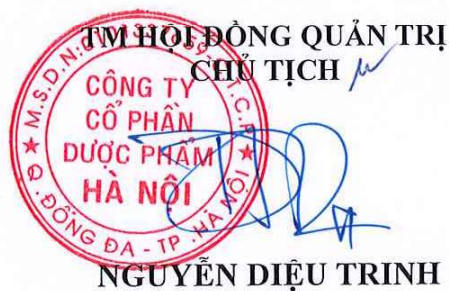 TM HỘI ĐỒNG QUẢN TRỊ
CHỦ TỊCH
CÔNG TY
CỔ PHẦN
DƯỢC PHẨM
HÀ NỘI
Q. ĐỐNG ĐA - TP. HÀ NỘI
NGUYỄN DIỆU TRINH